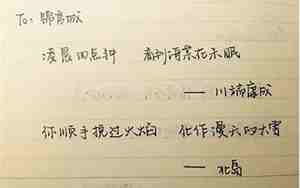 To: 鄢彦成
凌晨四点钟 看到海棠花未眠
——川端康成
你顺手挽过火焰 化作漫天的大雪
——北岛